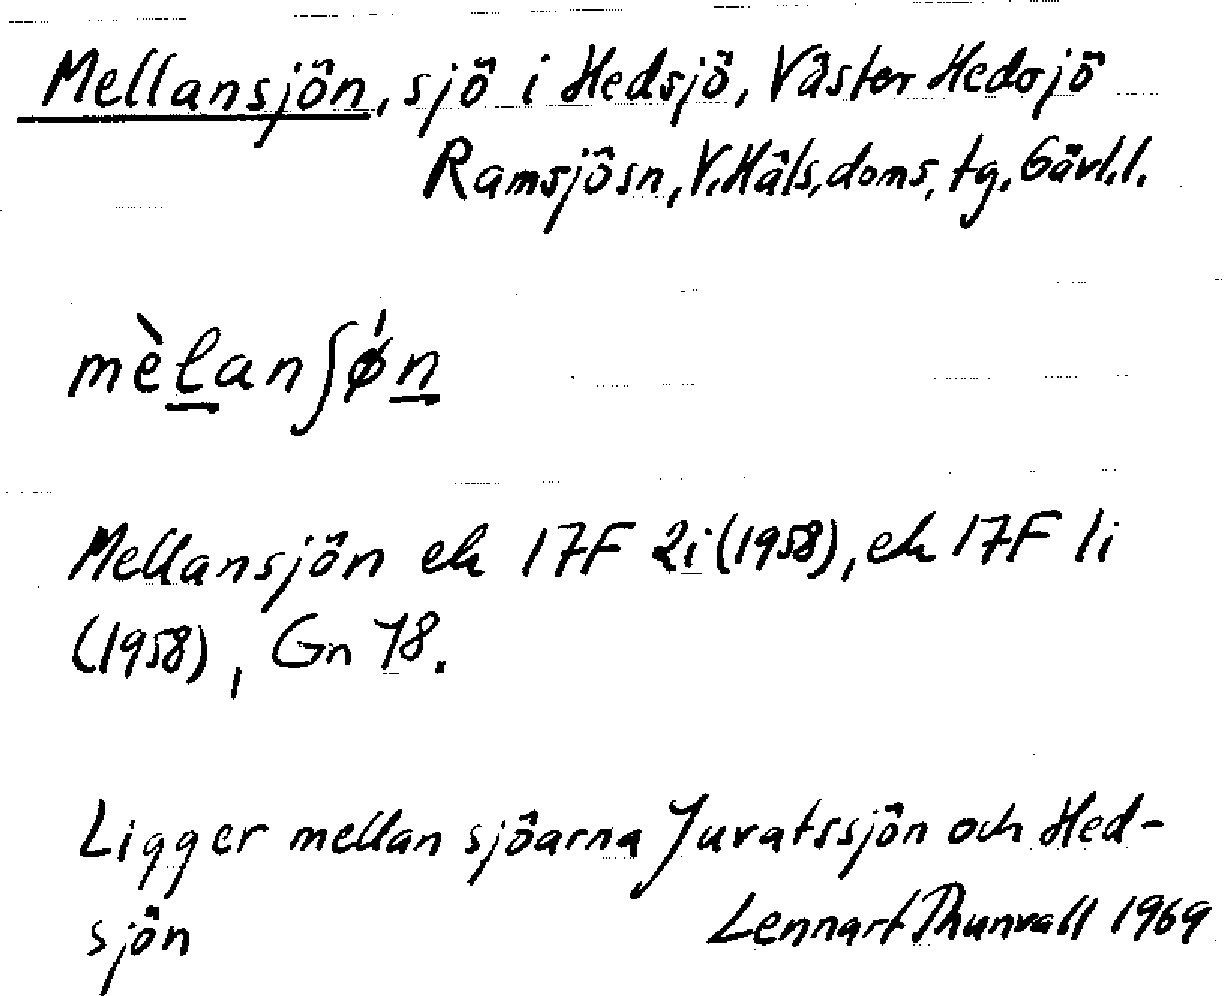 Mellansjön, sjö i Hedsjö, Väster Hedsjö
Ramsjösn, V. Häls. doms. tg, Gävl. l.
mèlanʃǿn
Mellansjön ek 17F 2i (1958), ek 17F 1i
(1958), Gn 78.
Ligger mellan sjöarna Juvatssjön och Hed-
sjön
Lennart Thunvall 1969